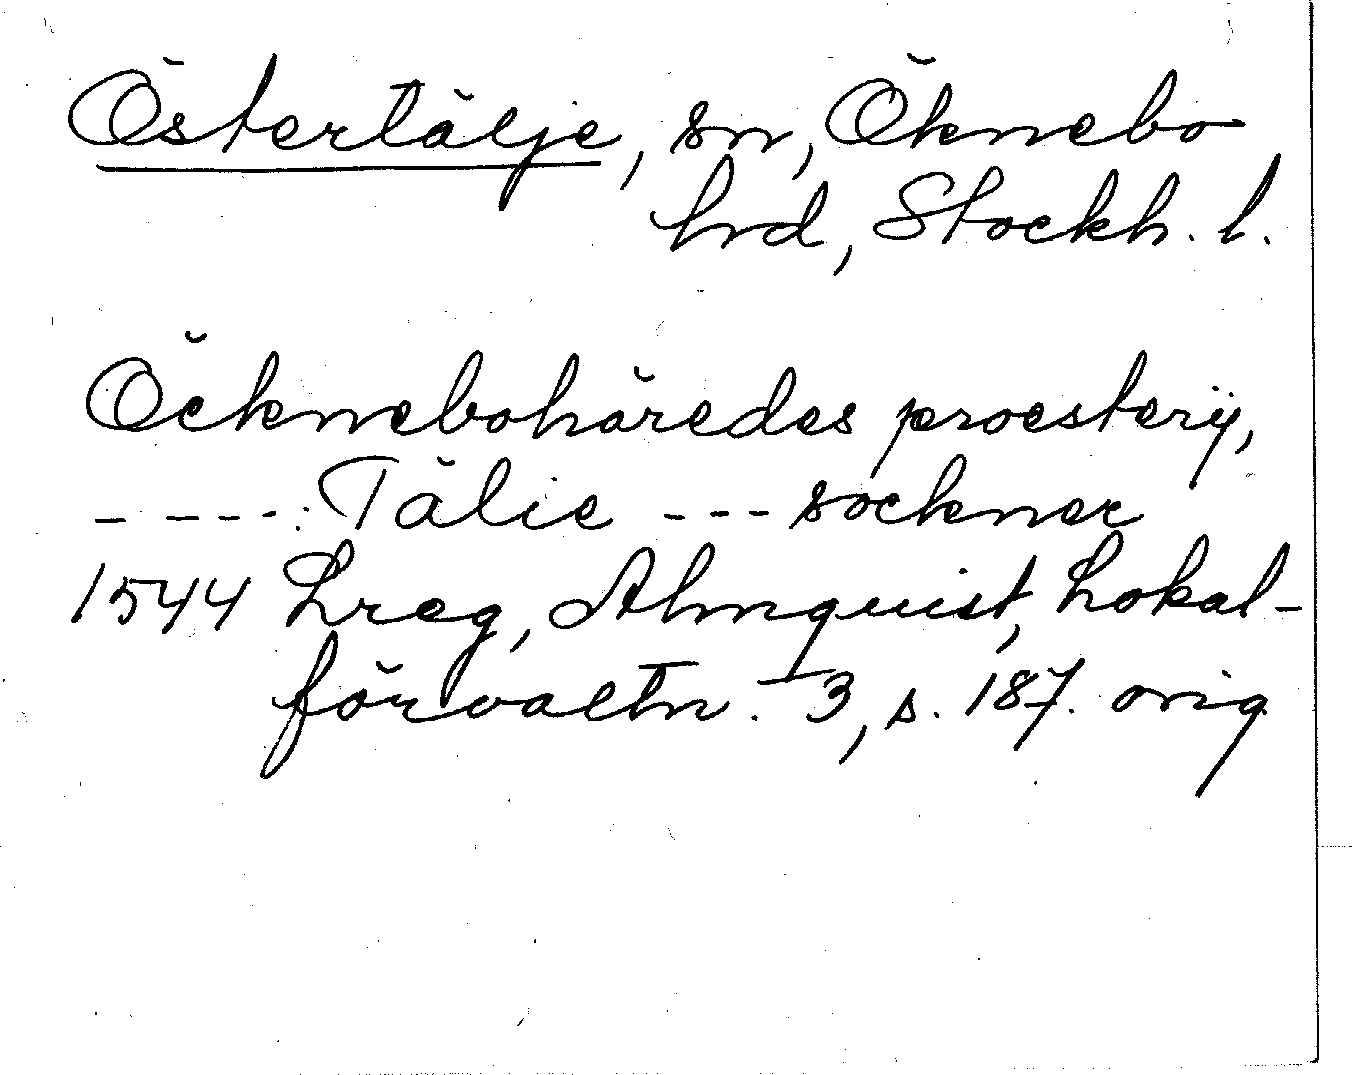 Östertälje, sn, Öknebo
hrd, Stockh. l.
Öcknebohäredes proesterij,
- - - - : Tälie - - - sockner
1544 Lreg, Almquist, Lokal-
förvaltn. 3, s. 187. orig